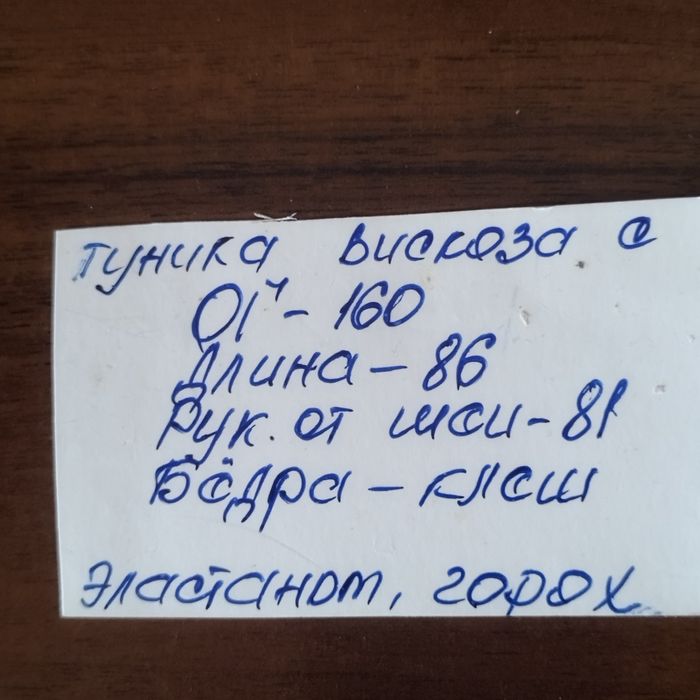 туника вискоза с
ОГ - 160
Длина - 86
Рук. от шеи - 81
Бёдра - клеш
эластаном, горох